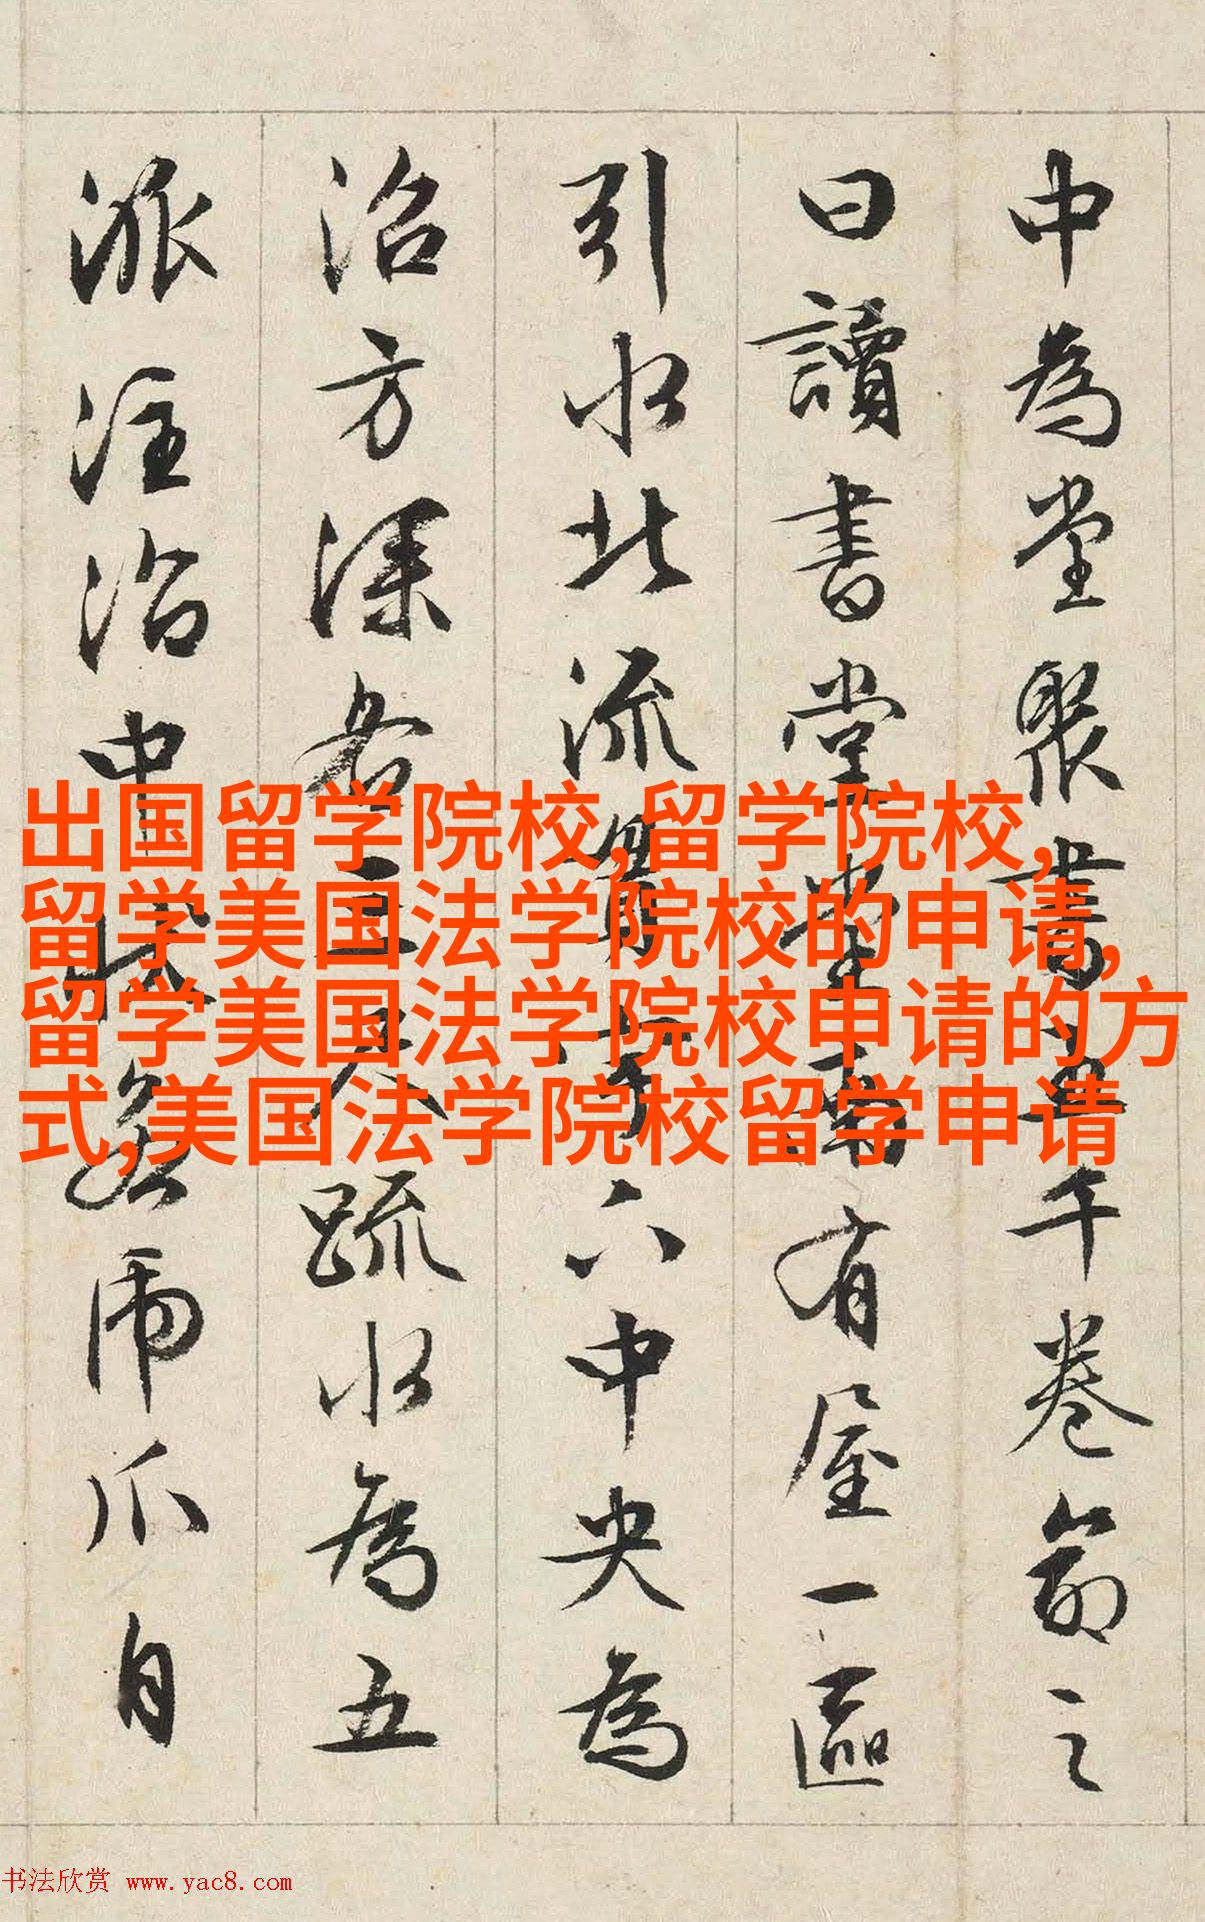 中為堂聚書五千卷命之
曰讀書堂堂南有屋一區
引水北流貫宇下中央為
沼方深各三尺疏水為五
派注沼中狀若虎爪自
出国留学院校,留学院校,
留学美国法学院校的申请,
留学美国法学院校申请的方
式,美国法学院校留学申请
书法欣赏 www.yac8.com